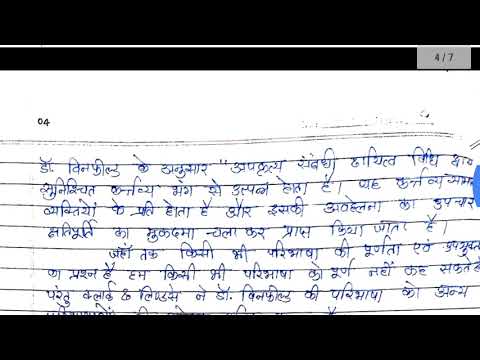 4/7
04
डॉ. विनफील्ड के अनुसार "अपकृत्य संबंधी दायित्व विधि द्वारा
सुनिश्चित कर्त्तव्य भंग से उत्पन्न होता है। यह कर्त्तव्य
व्यक्तियों के प्रति होता है और इसकी अवहेलना का उपचार
क्षतिपूर्ति का मुकदमा चला कर प्राप्त किया जाता है।
जहाँ तक किसी भी परिभाषा की पूर्णता एवं
का प्रश्न है हम किसी भी परिभाषा को पूर्ण नहीं कह सकते
परंतु क्लार्क & लिण्डसे ने डॉ. विनफील्ड की परिभाषा को अन्य